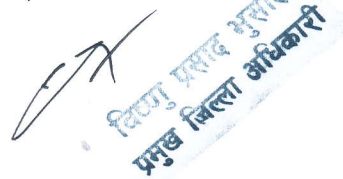 विष्णु प्रसाद
प्रमुख जिल्ला अधिकारी